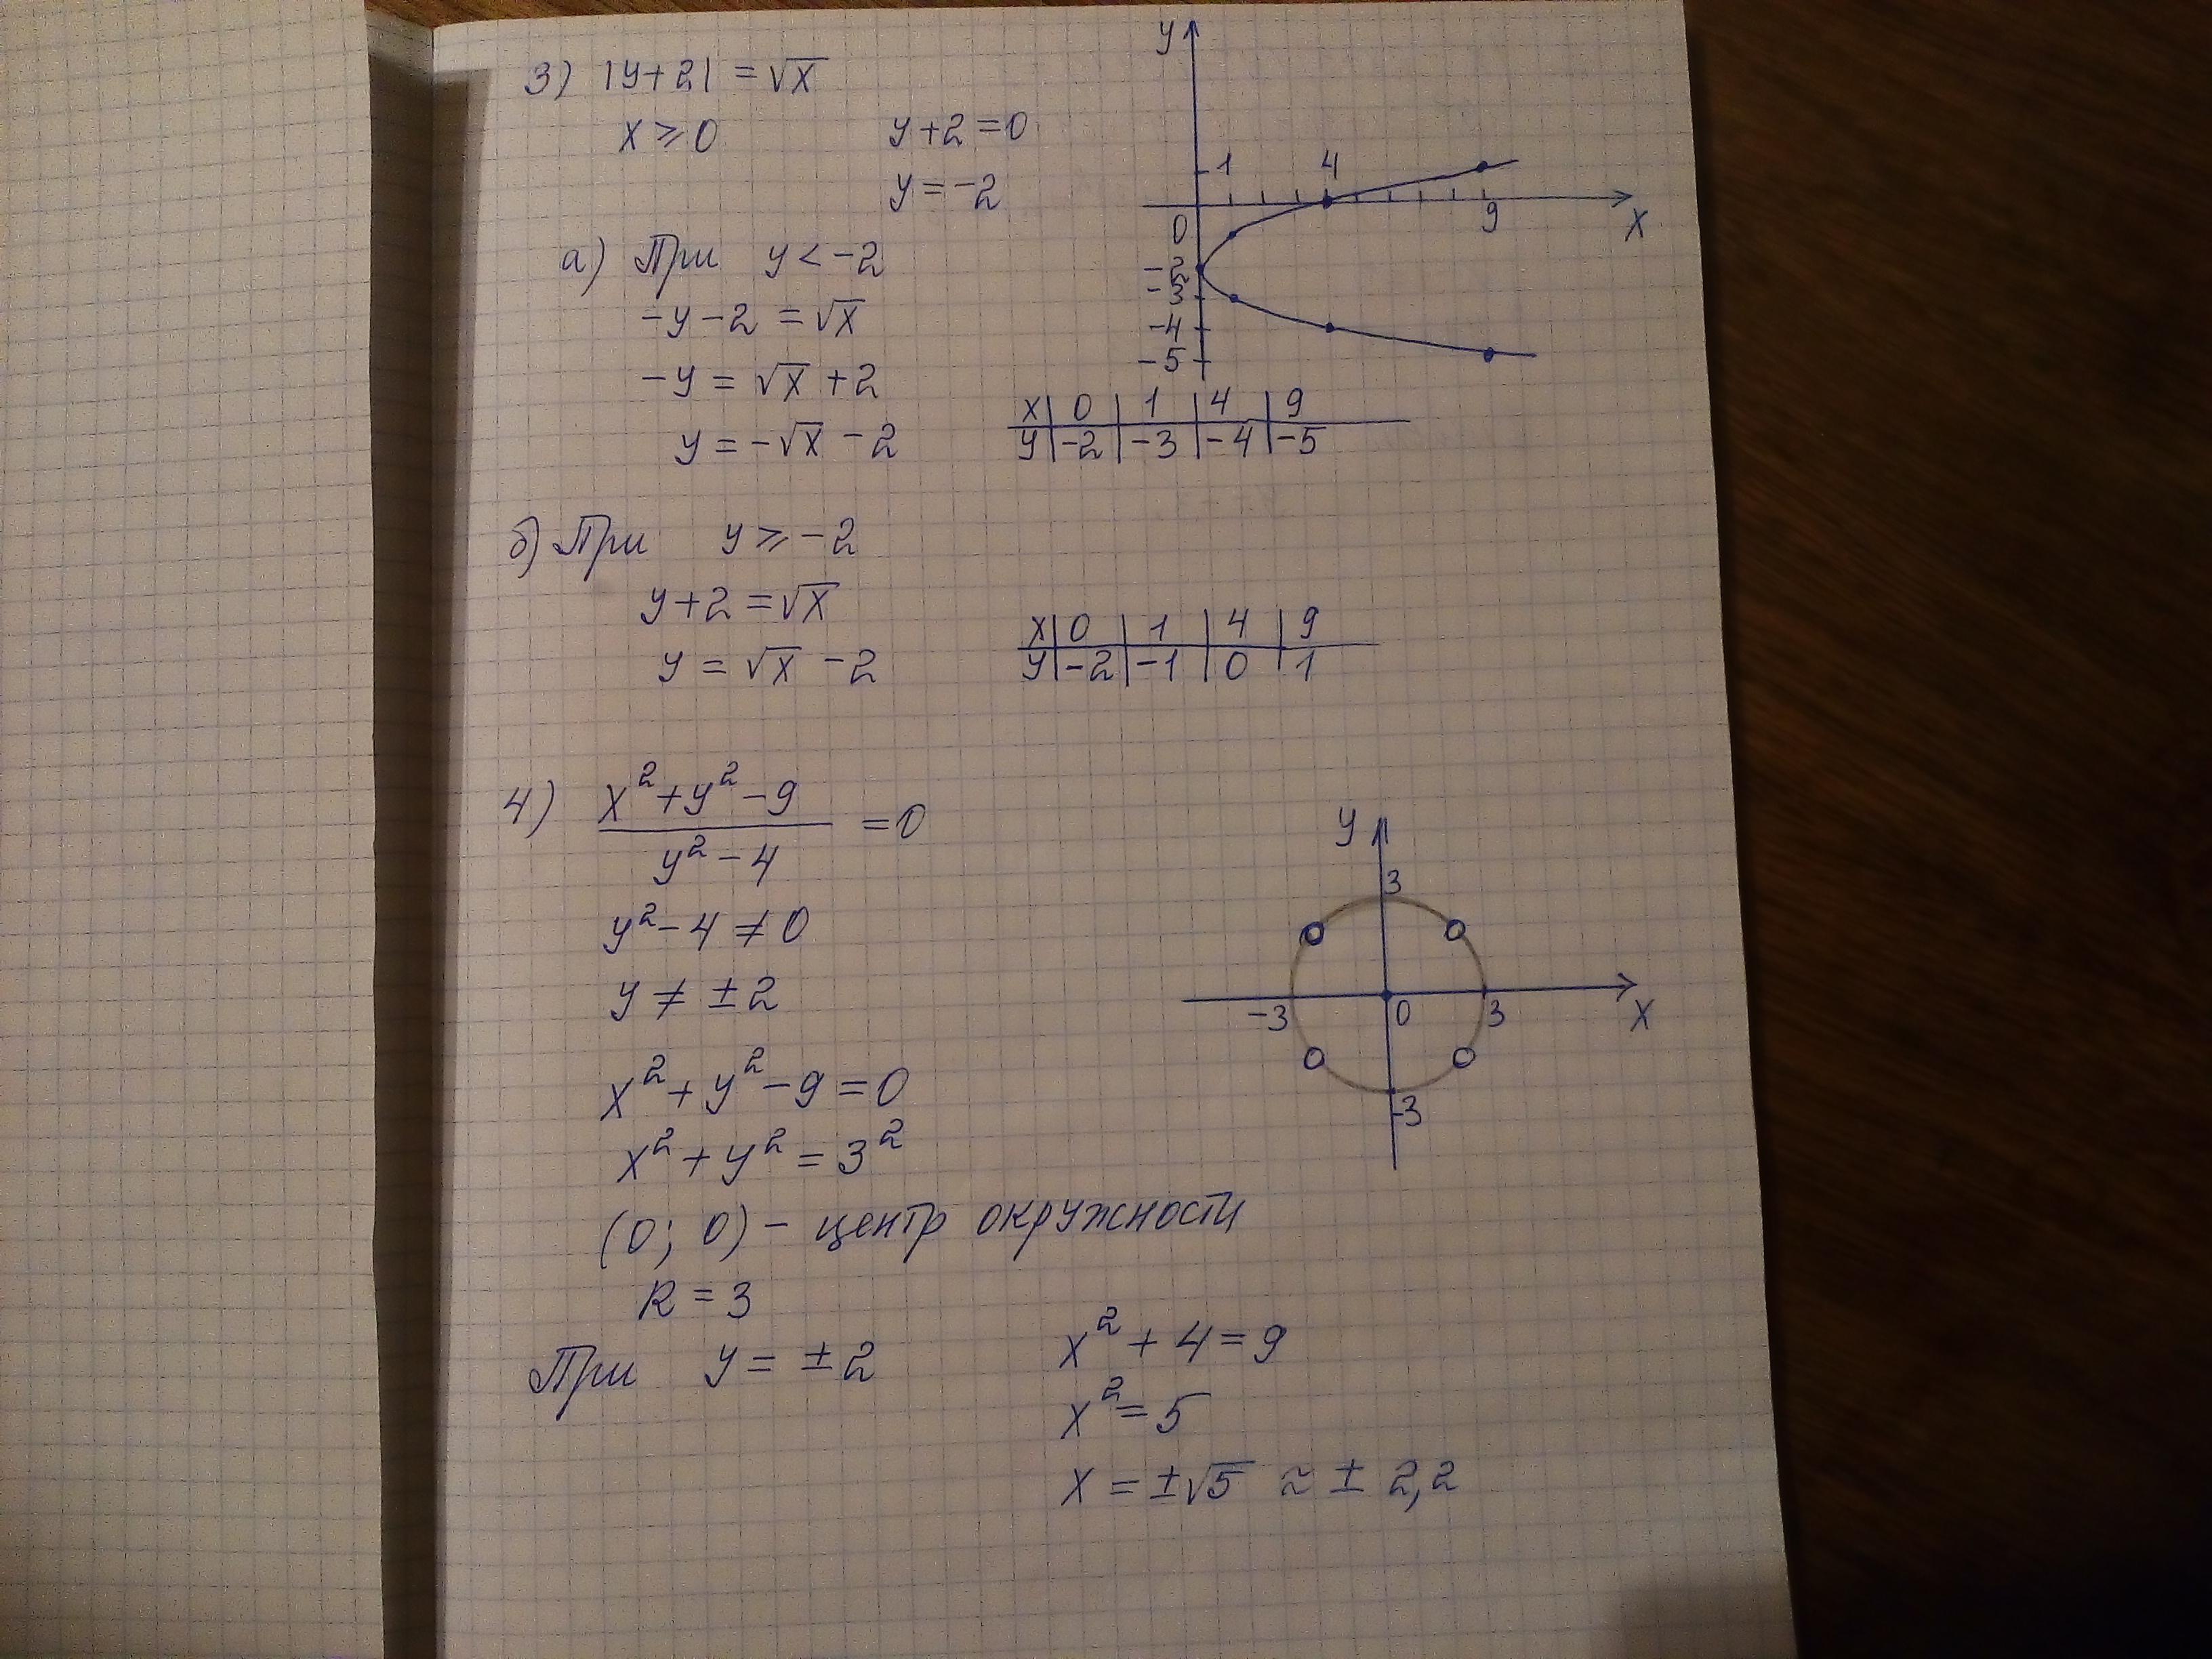 3) |y+2| = √x
x ≥ 0 y+2=0
y = -2
а) При y < -2
-y-2 = √x
-y = √x + 2
y = -√x - 2
y
1 4
0 9 x
-2
-3
-4
-5
x 0 1 4 9
y -2 -3 -4 -5
б) При y ≥ -2
y+2 = √x
y = √x - 2
x 0 1 4 9
y -2 -1 0 1
4) (x²+y²-9)/(y²-4) = 0
y²-4 ≠ 0
y ≠ ±2
x²+y²-9=0
x²+y²=3²
(0; 0) - центр окружности
R = 3
y
3
-3 0 3 x
-3
При y = ±2 x²+4=9
x²=5
x = ±√5 ≈ ± 2,2